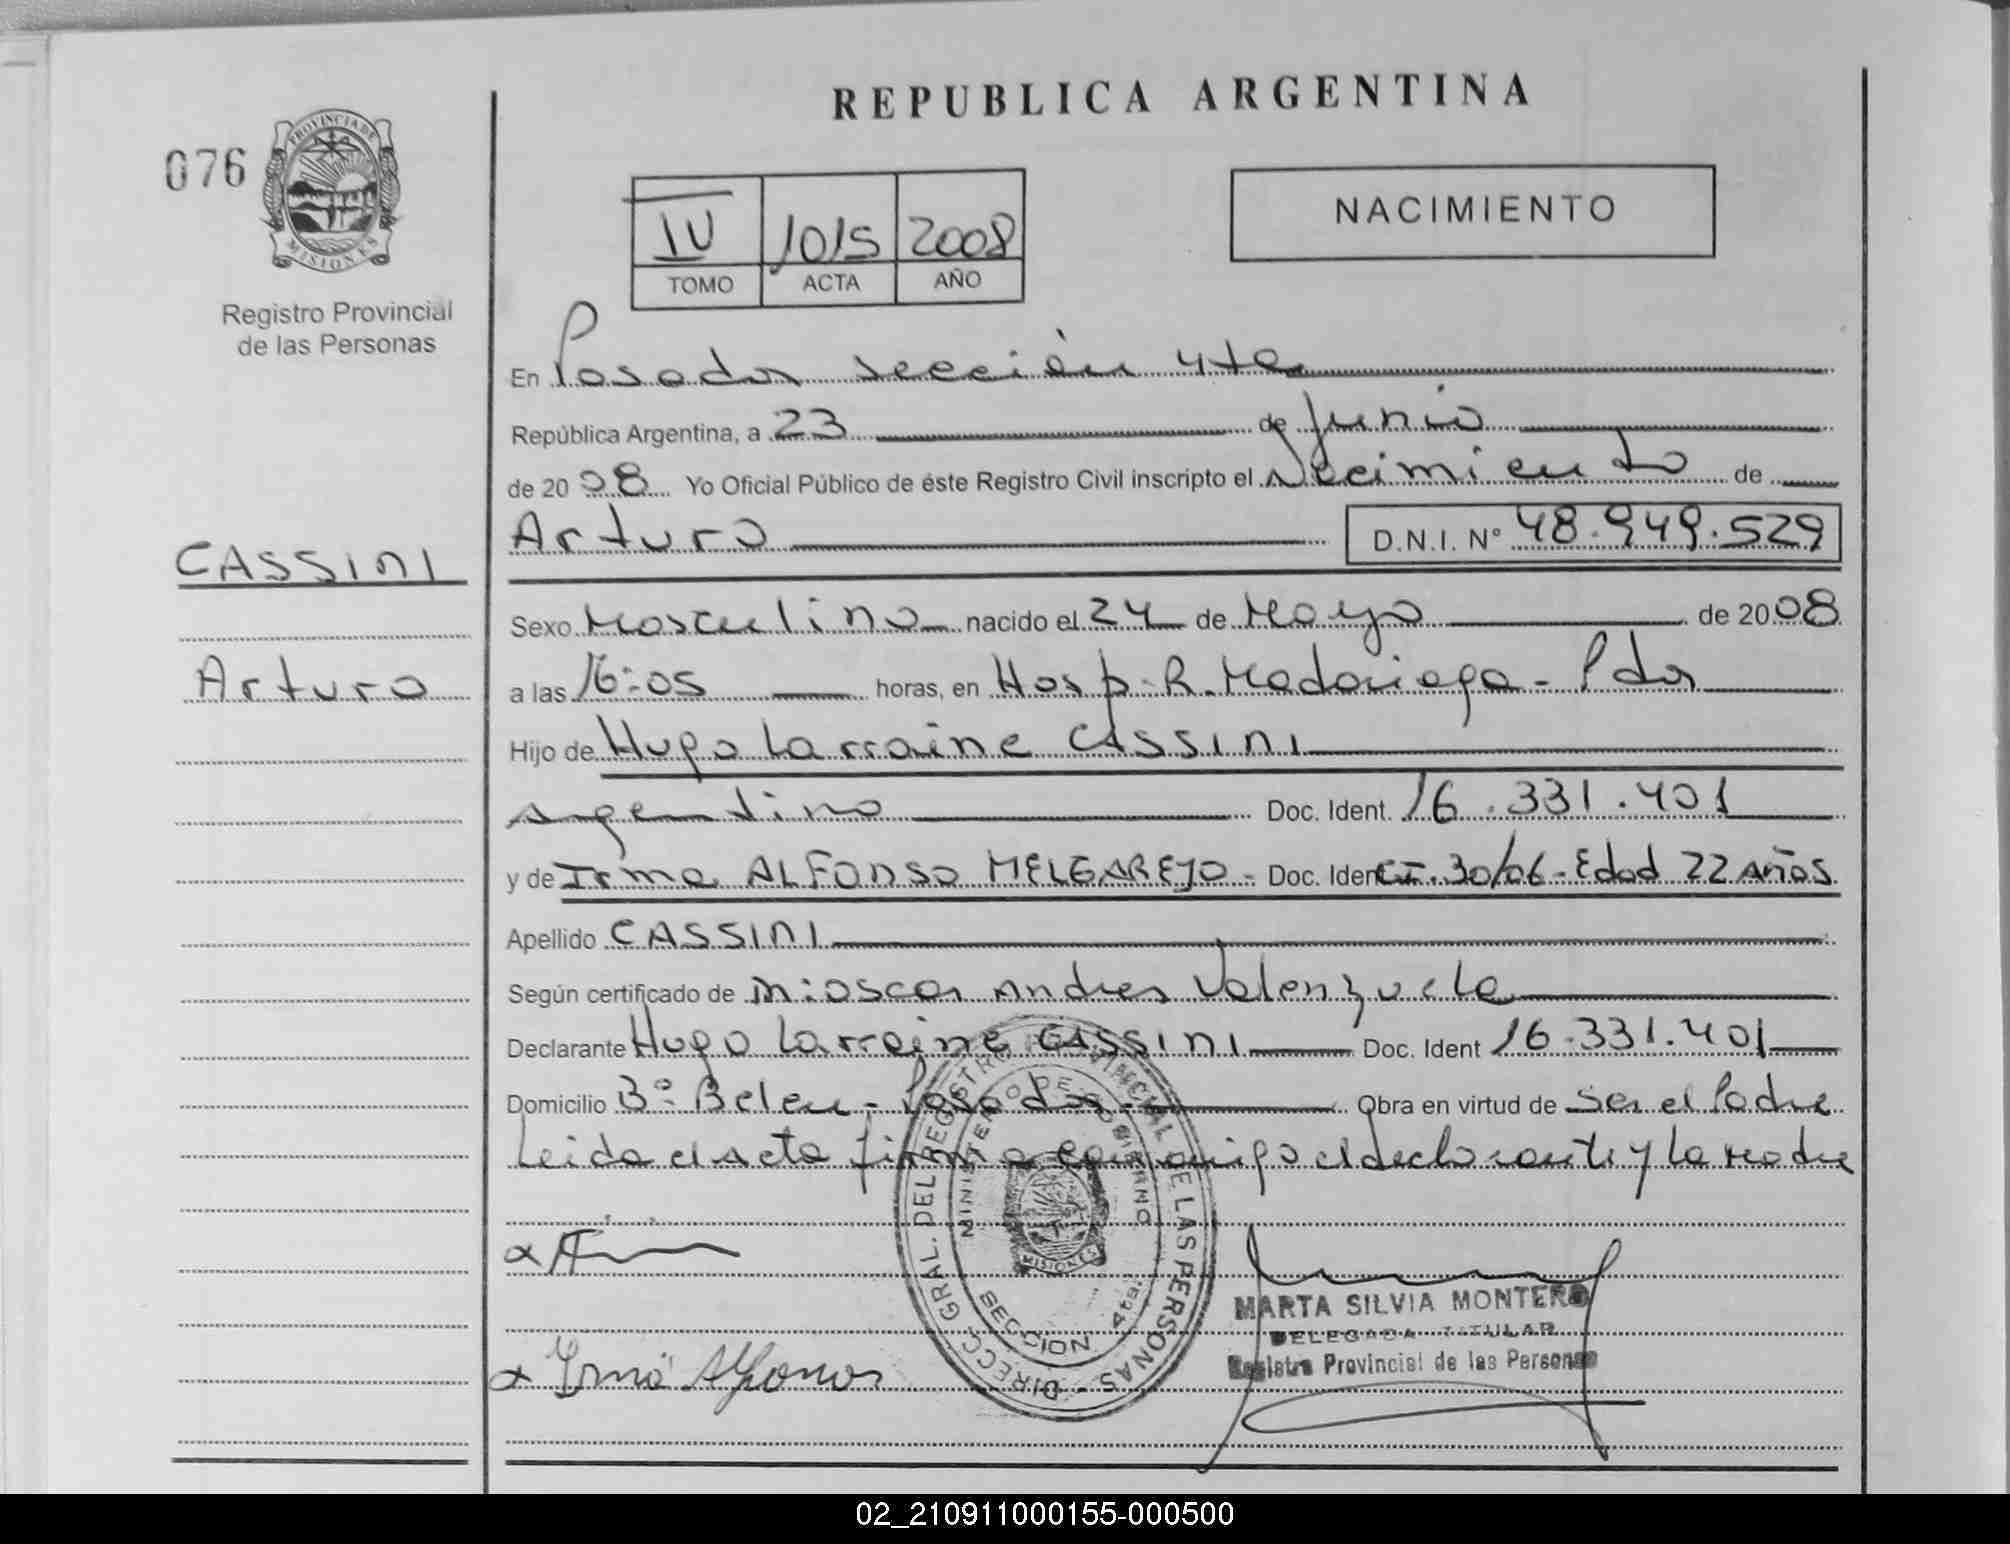 REPUBLICA ARGENTINA
076
PROVINCIA DE
MISIONES
Registro Provincial
de las Personas
IV 1015 2008
TOMO ACTA AÑO
NACIMIENTO
En Posadas sección 4ta
República Argentina, a 23 de Junio
de 20 08 Yo Oficial Público de éste Registro Civil inscripto el Nacimiento de
Arturo D.N.I. N° 48.949.529
CASSINI
Arturo
Sexo Masculino nacido el 24 de Mayo de 2008
a las 16:05 horas, en Hosp. R. Madariaga - Pdas
Hijo de Hugo Larraine CASSINI
argentino Doc. Ident. 16.331.401
y de Irma ALFONSO MELGAREJO - Doc. Ident CI. 30/06 - Edad 22 Años
Apellido CASSINI
Según certificado de Oscar Andres Valenzuela
Declarante Hugo Larraine CASSINI Doc. Ident 16.331.401
Domicilio B° Belen - Posadas - Obra en virtud de Ser el Padre
Leida el acta firma conmigo el declarante y la Madre
DIRECC. GRAL. DEL REGISTRO PROVINCIAL DE LAS PERSONAS
MINISTERIO DE GOBIERNO
MISIONES
SECCION 4
MARTA SILVIA MONTERO
DELEGADA TITULAR
Registro Provincial de las Personas
Irma Alfonso
02_210911000155-000500